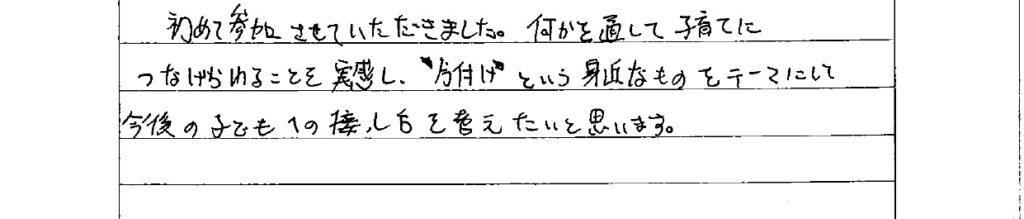 初めて参加させていただきました。何かを通して子育てに
つなげられることを実感し、"片付け"という身近なものをテーマにして
今後の子どもへの接し方を考えたいと思います。